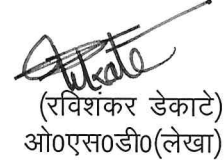 (रविशंकर डेकाटे)
ओ0एस0डी0(लेखा)